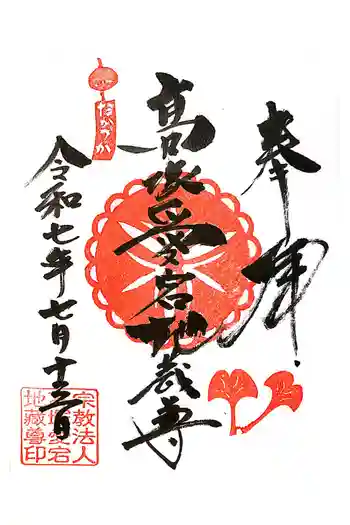 奉拝
高塚愛宕地蔵尊
たかつか
令和七年七月十三日
宗教法人
高塚愛宕
地蔵尊印